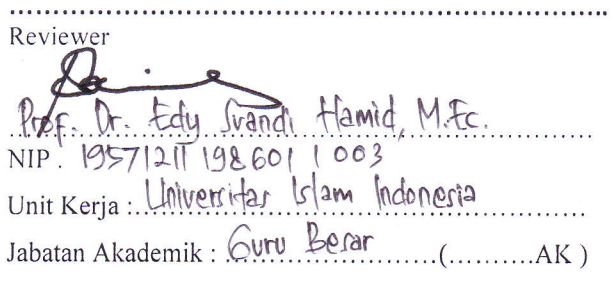 Reviewer
Prof. Dr. Edy Suandi Hamid, M.Ec.
NIP. 19571211 198601 1 003
Unit Kerja : Universitas Islam Indonesia
Jabatan Akademik : Guru Besar (..........AK )